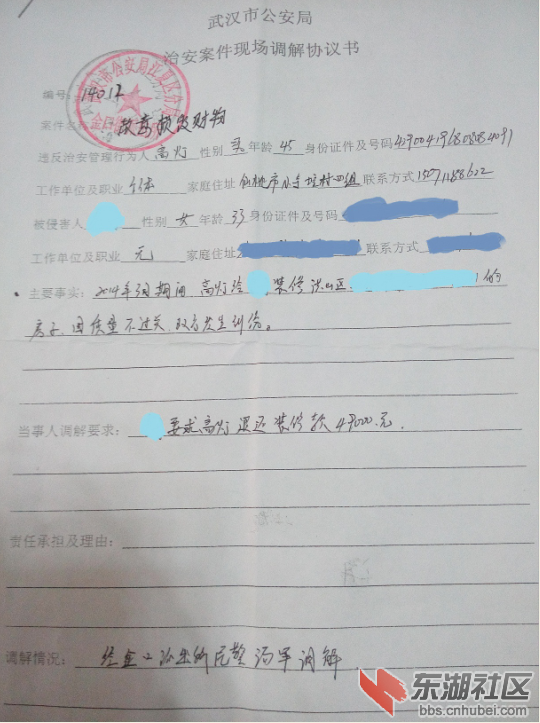 武汉市公安局
治安案件现场调解协议书
编号: 14012
案件名称: 故意损毁财物
违反治安管理行为人 高灯 性别 男 年龄 45 身份证件及号码
工作单位及职业 个体 家庭住址 仙桃市 村四组 联系方式
被侵害人 性别 女 年龄 33 身份证件及号码
工作单位及职业 无 家庭住址 联系方式
主要事实: 2014年3月期间 高灯给 装修洪山区 的
房子,因质量不过关,双方发生纠纷。
当事人调解要求: 要求高灯退还装修款49000元.
责任承担及理由:
调解情况: 经金口派出所民警 调解
东湖社区
bbs.cnhubei.com